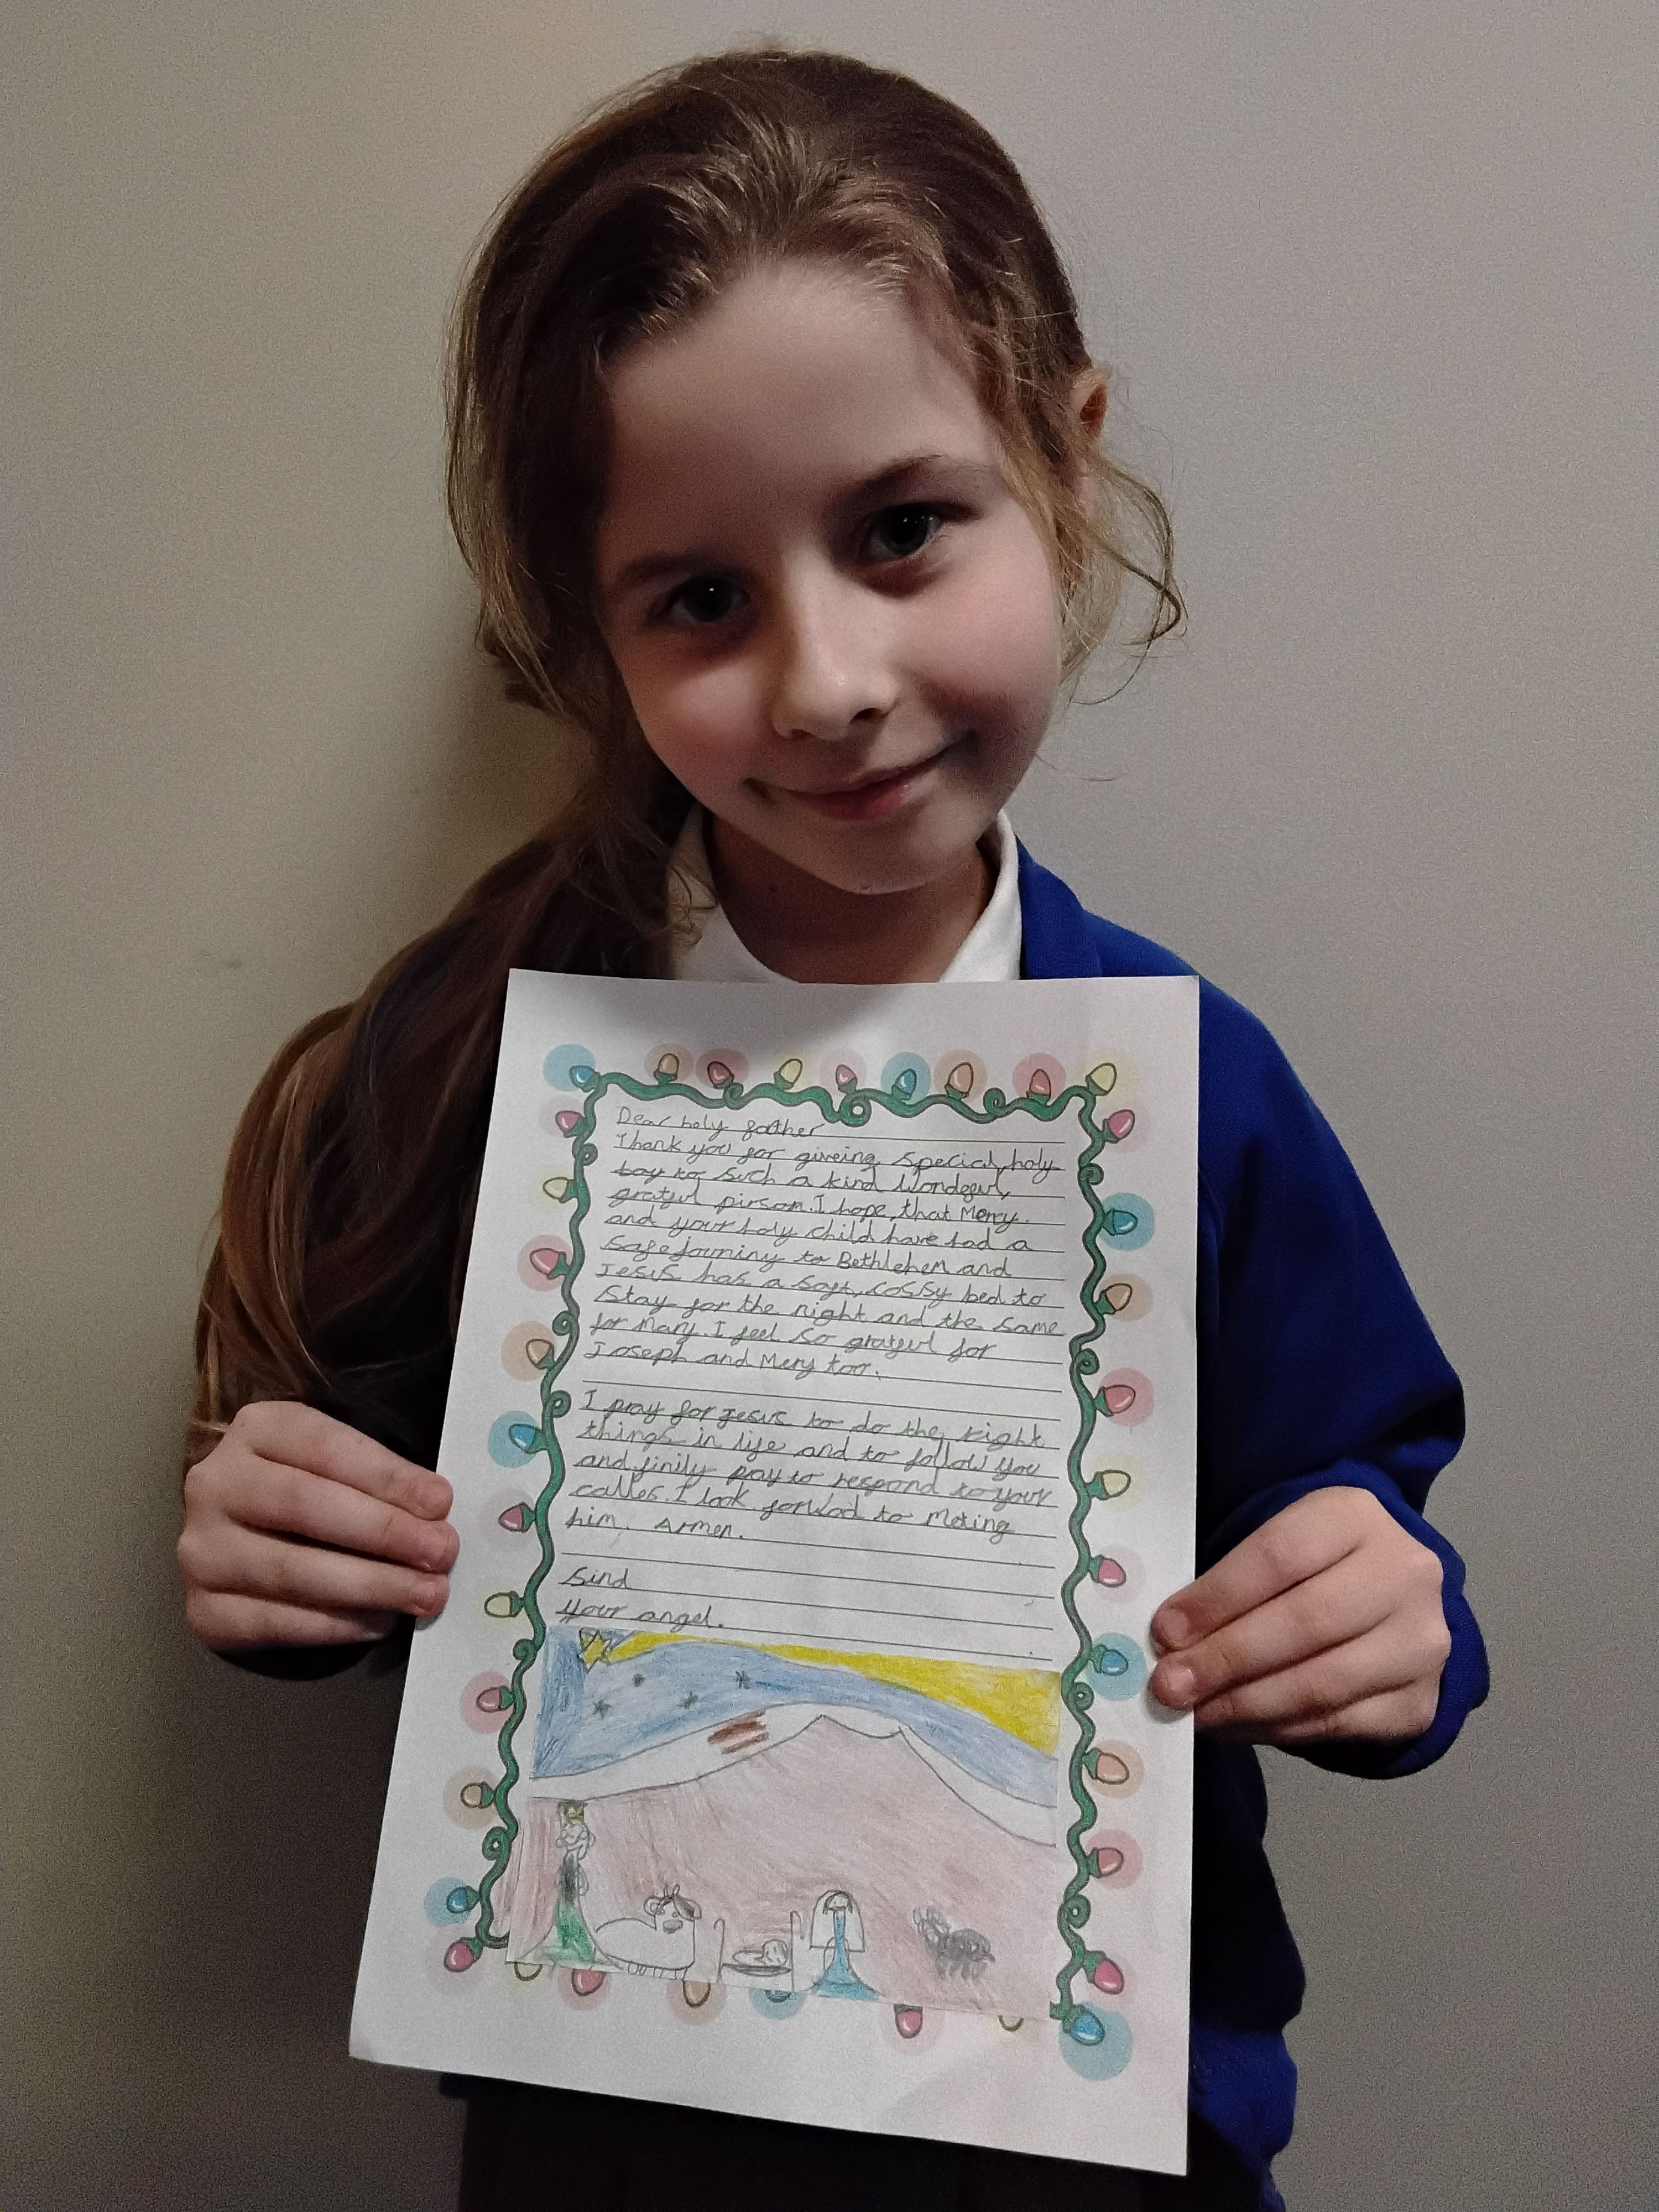 Dear holy father
Thank you for giveing special, holy
bay to such a kind Wondegul,
gratgul pirson. I hope, that Mery.
and your holy child have had a
safe journiny to Bethlehem and
Jesus has a soft, cossy bed to
stay for the night and the same
for Mary. I feel so gratgul for
Joseph and Mery too.
I pray for Jesus to do the right
things in life and to follow you
and finily pray to respond to your
calles. I look forwod to Meting
him. Armen.
Sind
Your angel.